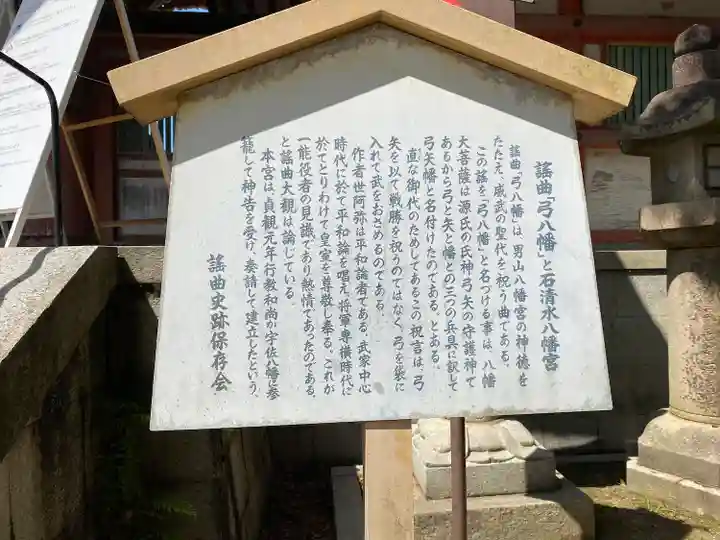 謡曲「弓八幡」と石清水八幡宮
謡曲「弓八幡」は、男山八幡宮の神徳を
たたえ、威武の聖代を祝う曲である。
この謡を「弓八幡」と名つける事は、八幡
大菩薩は源氏の氏神、弓矢の守護神で
あるから弓と矢と幡との三つの兵具に訳して
弓矢幡と名付けたのである。とある。
直な御代のためしてあるこの祝言は、弓
矢を以て戦勝を祝うのではなく、弓を袋に
入れて武をおさめるのである。
作者世阿弥は平和論者である。武家中心
時代に於て平和論を唱え、将軍専横時代に
於てとりわけても皇室を尊敬し奉る。これが
一能役者の見識であり熱情であったのである。
と謡曲大観は論じている。
本宮は、貞観元年行教和尚が宇佐八幡に参
籠して神告を受け、奏請して建立したという。
謡曲史跡保存会